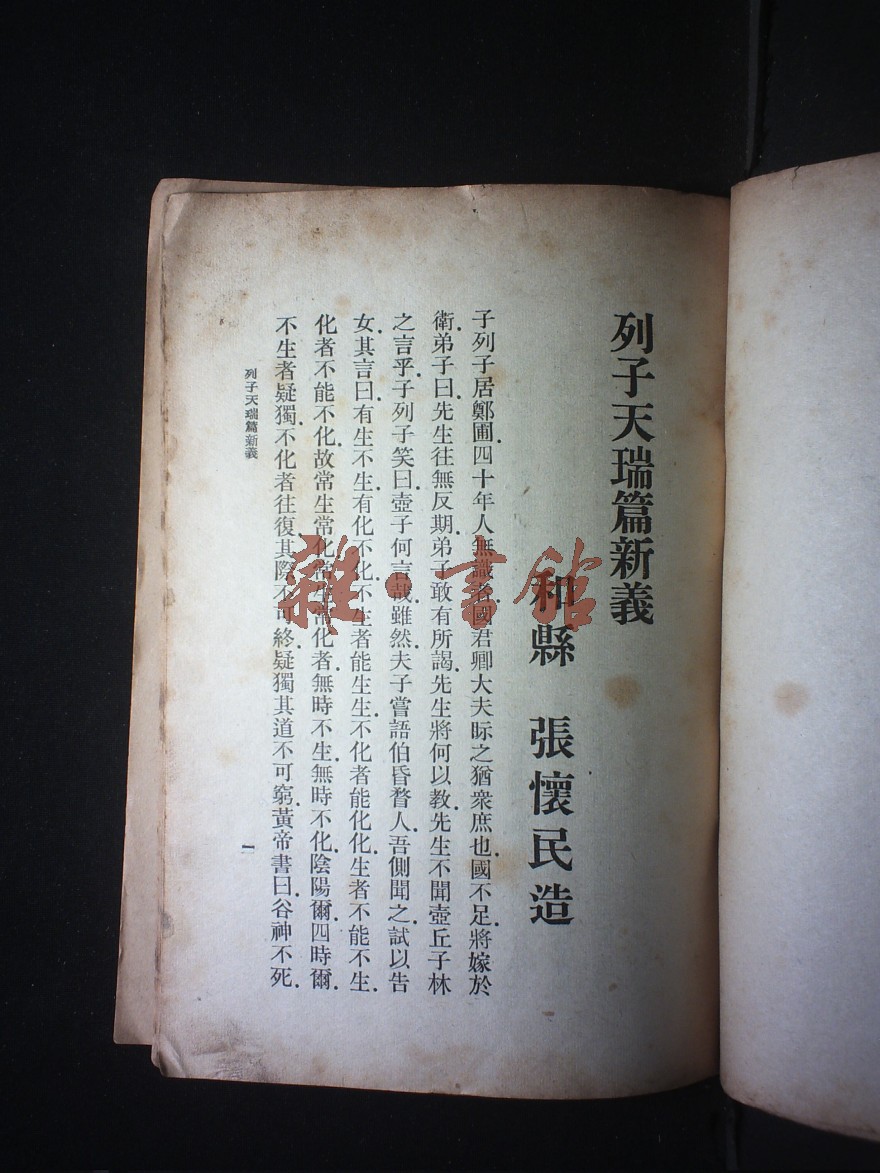 列子天瑞篇新義
和縣 張懷民造
子列子居鄭圃四十年人無識者國君卿大夫眎之猶衆庶也國不足將嫁於
衛弟子曰先生往無反期弟子敢有所謁先生將何以教先生不聞壺丘子林
之言乎子列子笑曰壺子何言哉雖然夫子嘗語伯昏瞀人吾側聞之試以告
女其言曰有生不生有化不化不生者能生生不化者能化化生者不能不生
化者不能不化故常生常化常生常化者無時不生無時不化陰陽爾四時爾
不生者疑獨不化者往復其際不可終疑獨其道不可窮黃帝書曰谷神不死
列子天瑞篇新義
一
雜·書館